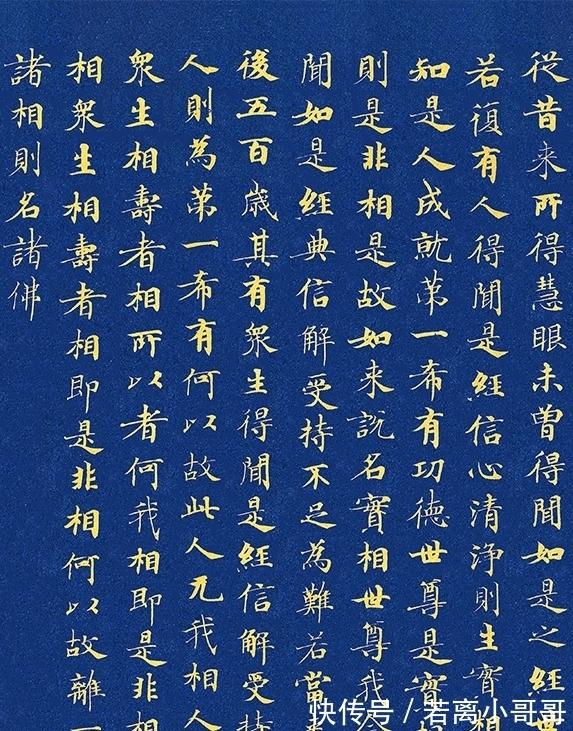 從昔來所得慧眼未曾得聞如是之經世
若復有人得聞是經信心清淨則生實相
知是人成就苐一希有功德世尊是實
則是非相是故如来說名實相世尊我
聞如是經典信解受持不足為難若當
後五百歲其有衆生得聞是經信解受持
人則為苐一希有何以故此人无我相人
衆生相壽者相所以者何我相即是非相
相衆生相壽者相即是非相何以故離一
諸相則名諸佛
快传号 / 若离小哥哥